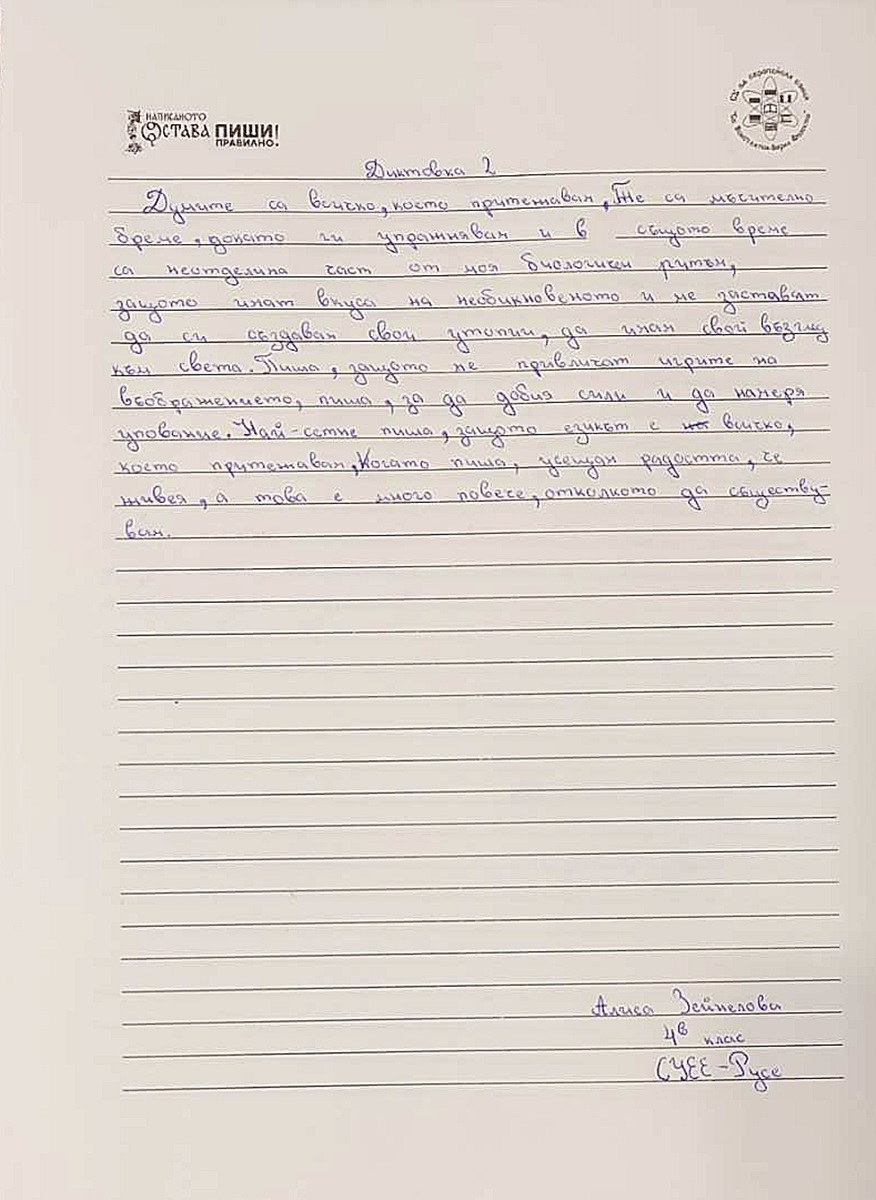 НАПИСАНОТО
ОСТАВА ПИШИ!
ПРАВИЛНО!
Диктовка 2
Думите са всичко, което притежавам, Те са мъчително
бреме, докато ги упражнявам и в същото време
са неотделима част от моя биологичен ритъм,
защото имат вкуса на необикновеното и ме заставят
да си създавам свои утопии, да имам свой възглед
към света. Пиша, защото ме привличат игрите на
въображението, пиша, за да добия сили и да намеря
упование. Най-сетне пиша, защото езикът е всичко,
което притежавам, Когато пиша, усещам радостта, че
живея, а това е много повече, отколкото да съществу-
вам.
Алиса Зейнелова
4в клас
СУЕЕ-Русе